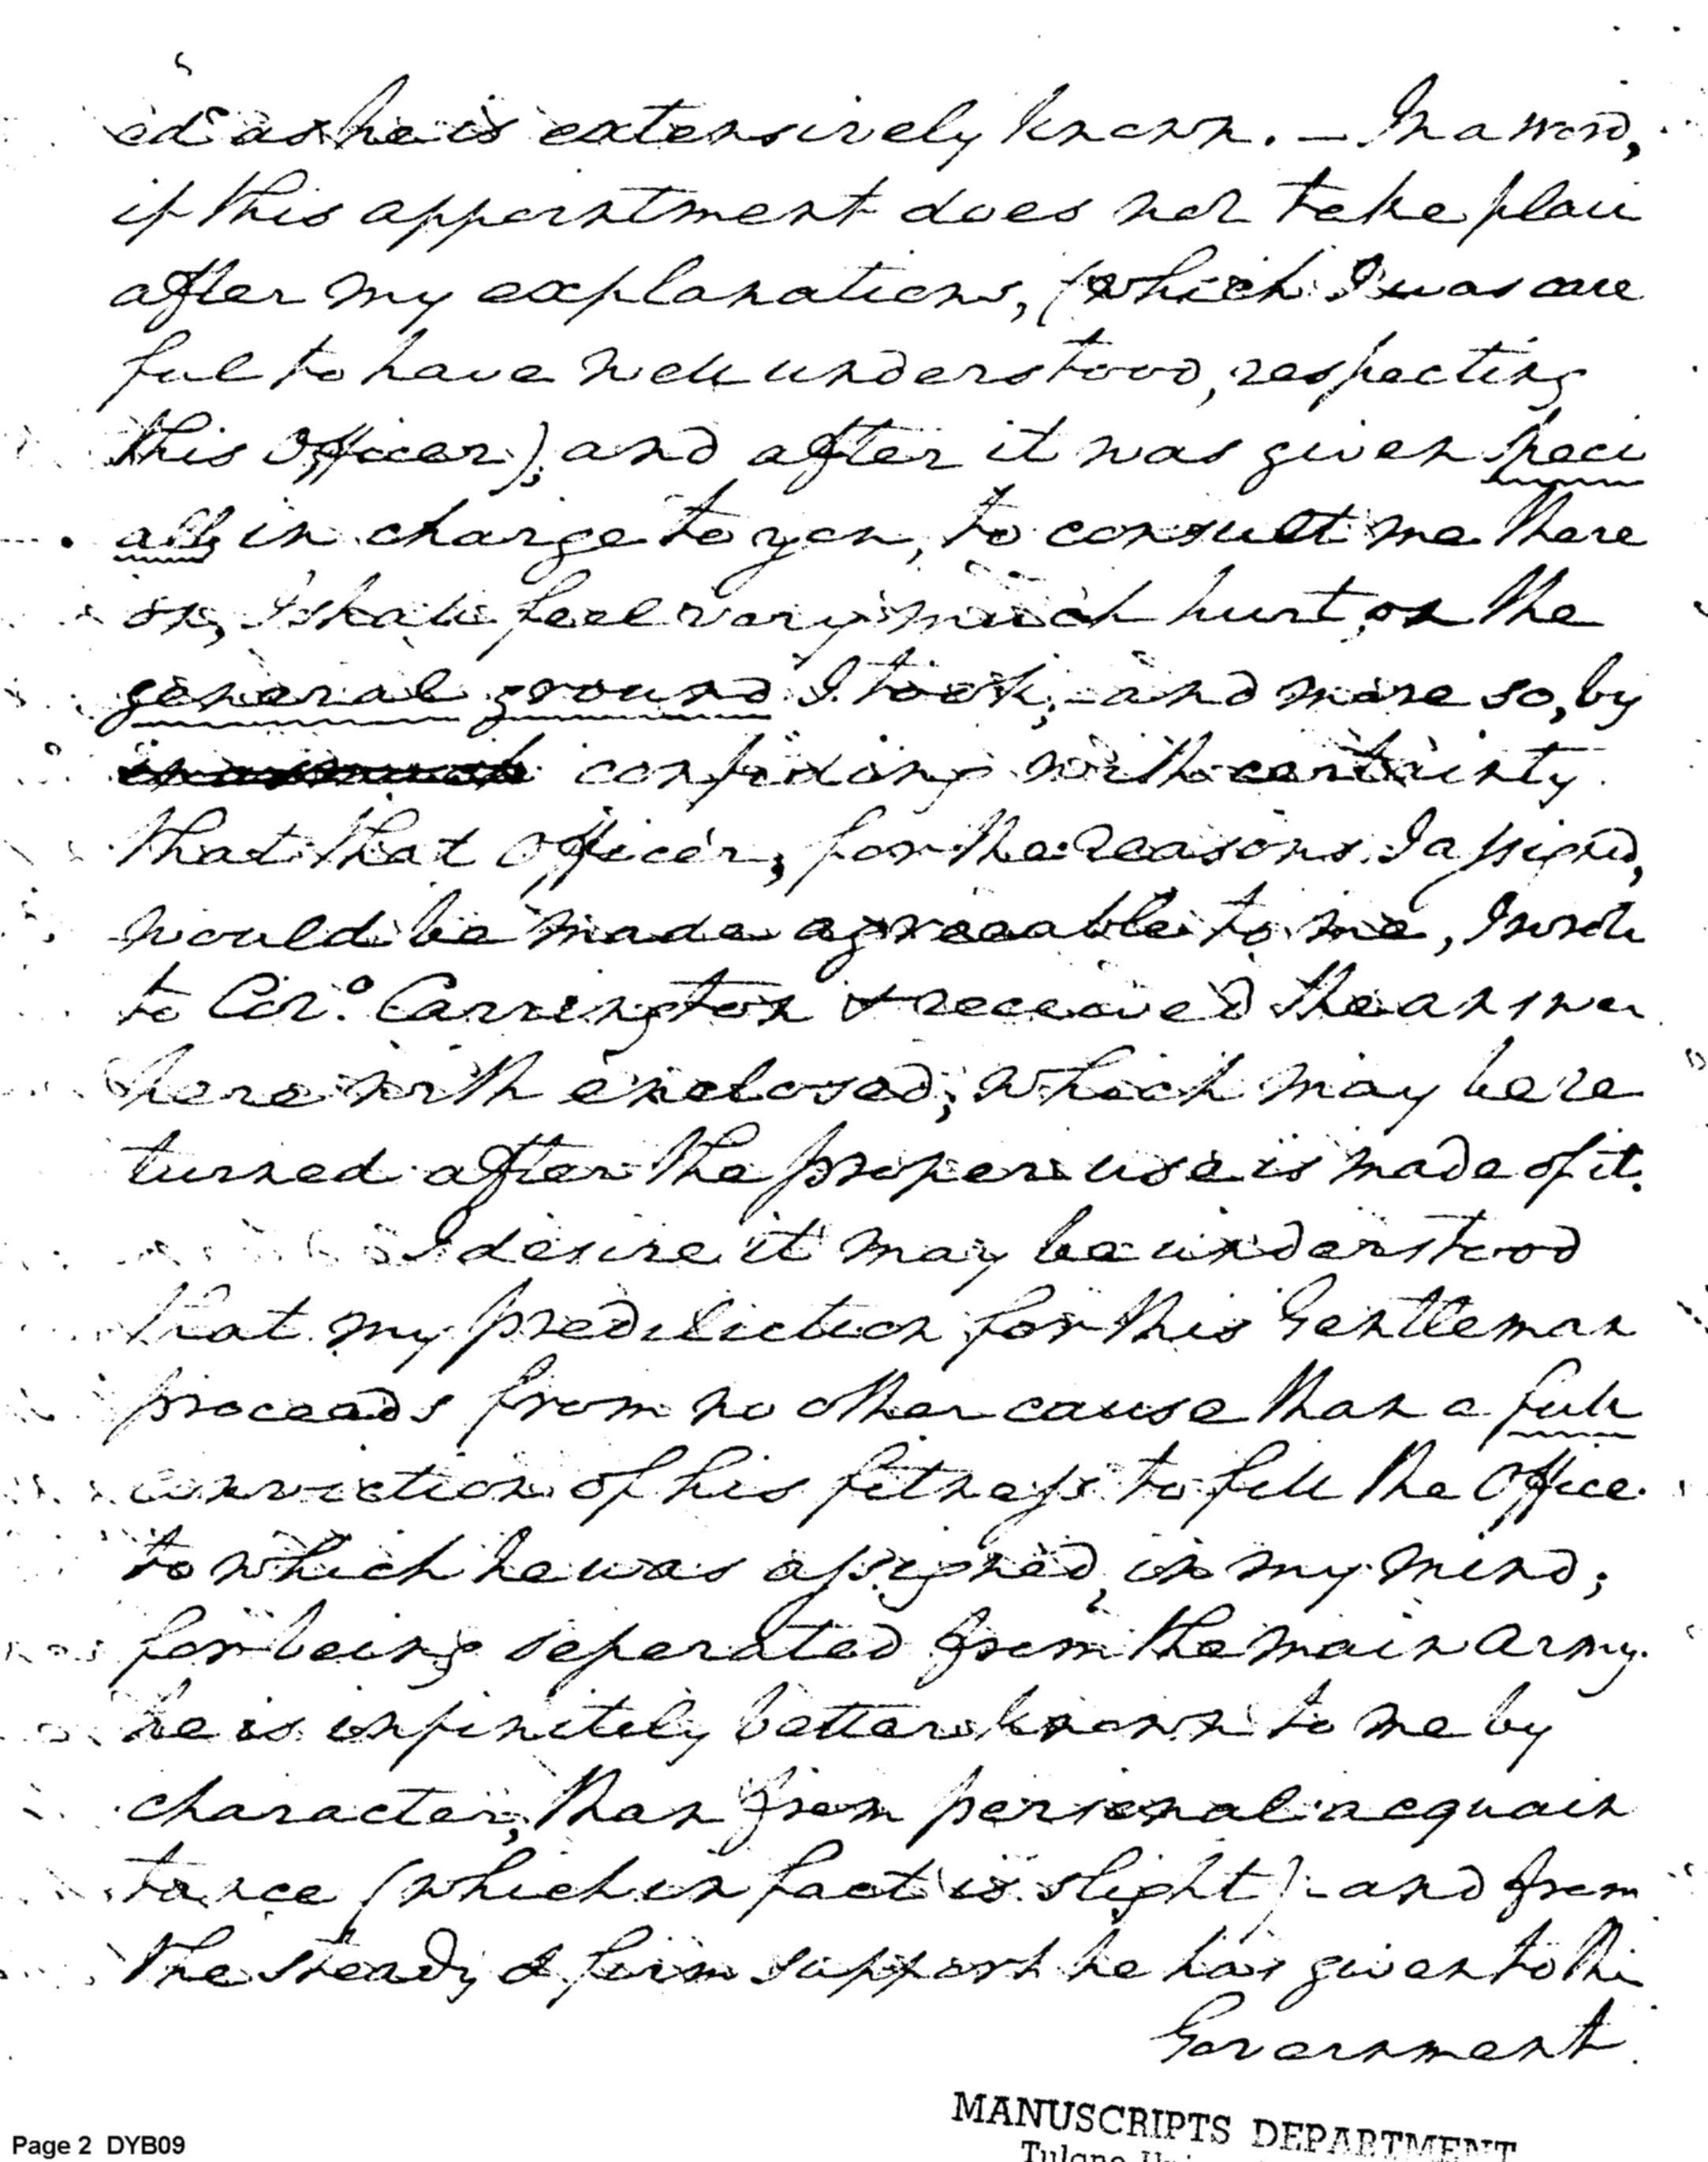 ed as he is extensively known. — In a word,
if this appointment does not take place
after my explanations, (which I was care
ful to have well understood, respecting
this Officer); and after it was given speci
ally in charge to you, to consult me there
on, I shall feel very much hurt, on the
general ground I took; and more so, by
inasmuch confiding with certainty
that that Officer, for the reasons I assigned,
would be made agreeable to me, I wrote
to Colo. Carrington & received the answer
herewith enclosed; which may be re
turned after the proper use is made of it.
I desire it may be understood
that my prediliction for this Gentleman
proceeds from no other cause than a full
conviction of his fitness to fill the Office
to which he was assigned, in my mind;
for being seperated from the main army
he is infinitely better known to me by
character, than from personal acquain
tance (which in fact is slight) - and from
the steady & firm support he has given to the
Government.
MANUSCRIPTS DEPARTMENT
Page 2 DYB09